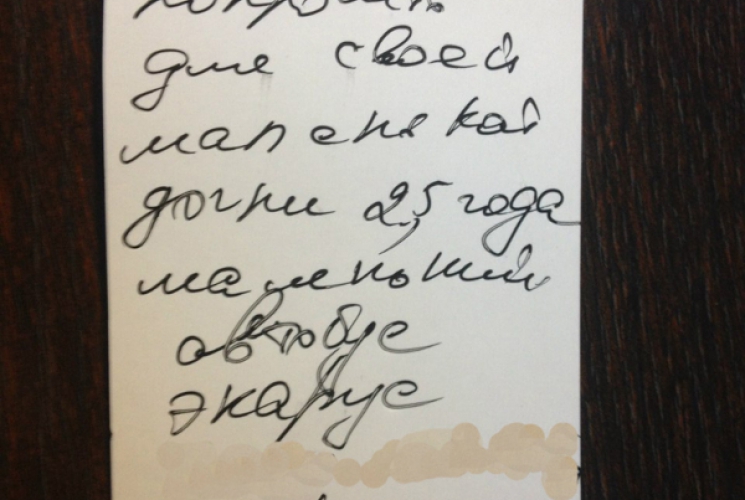 для своей
маленькой
дочки 2,5 года
маленький
автобус
экарус